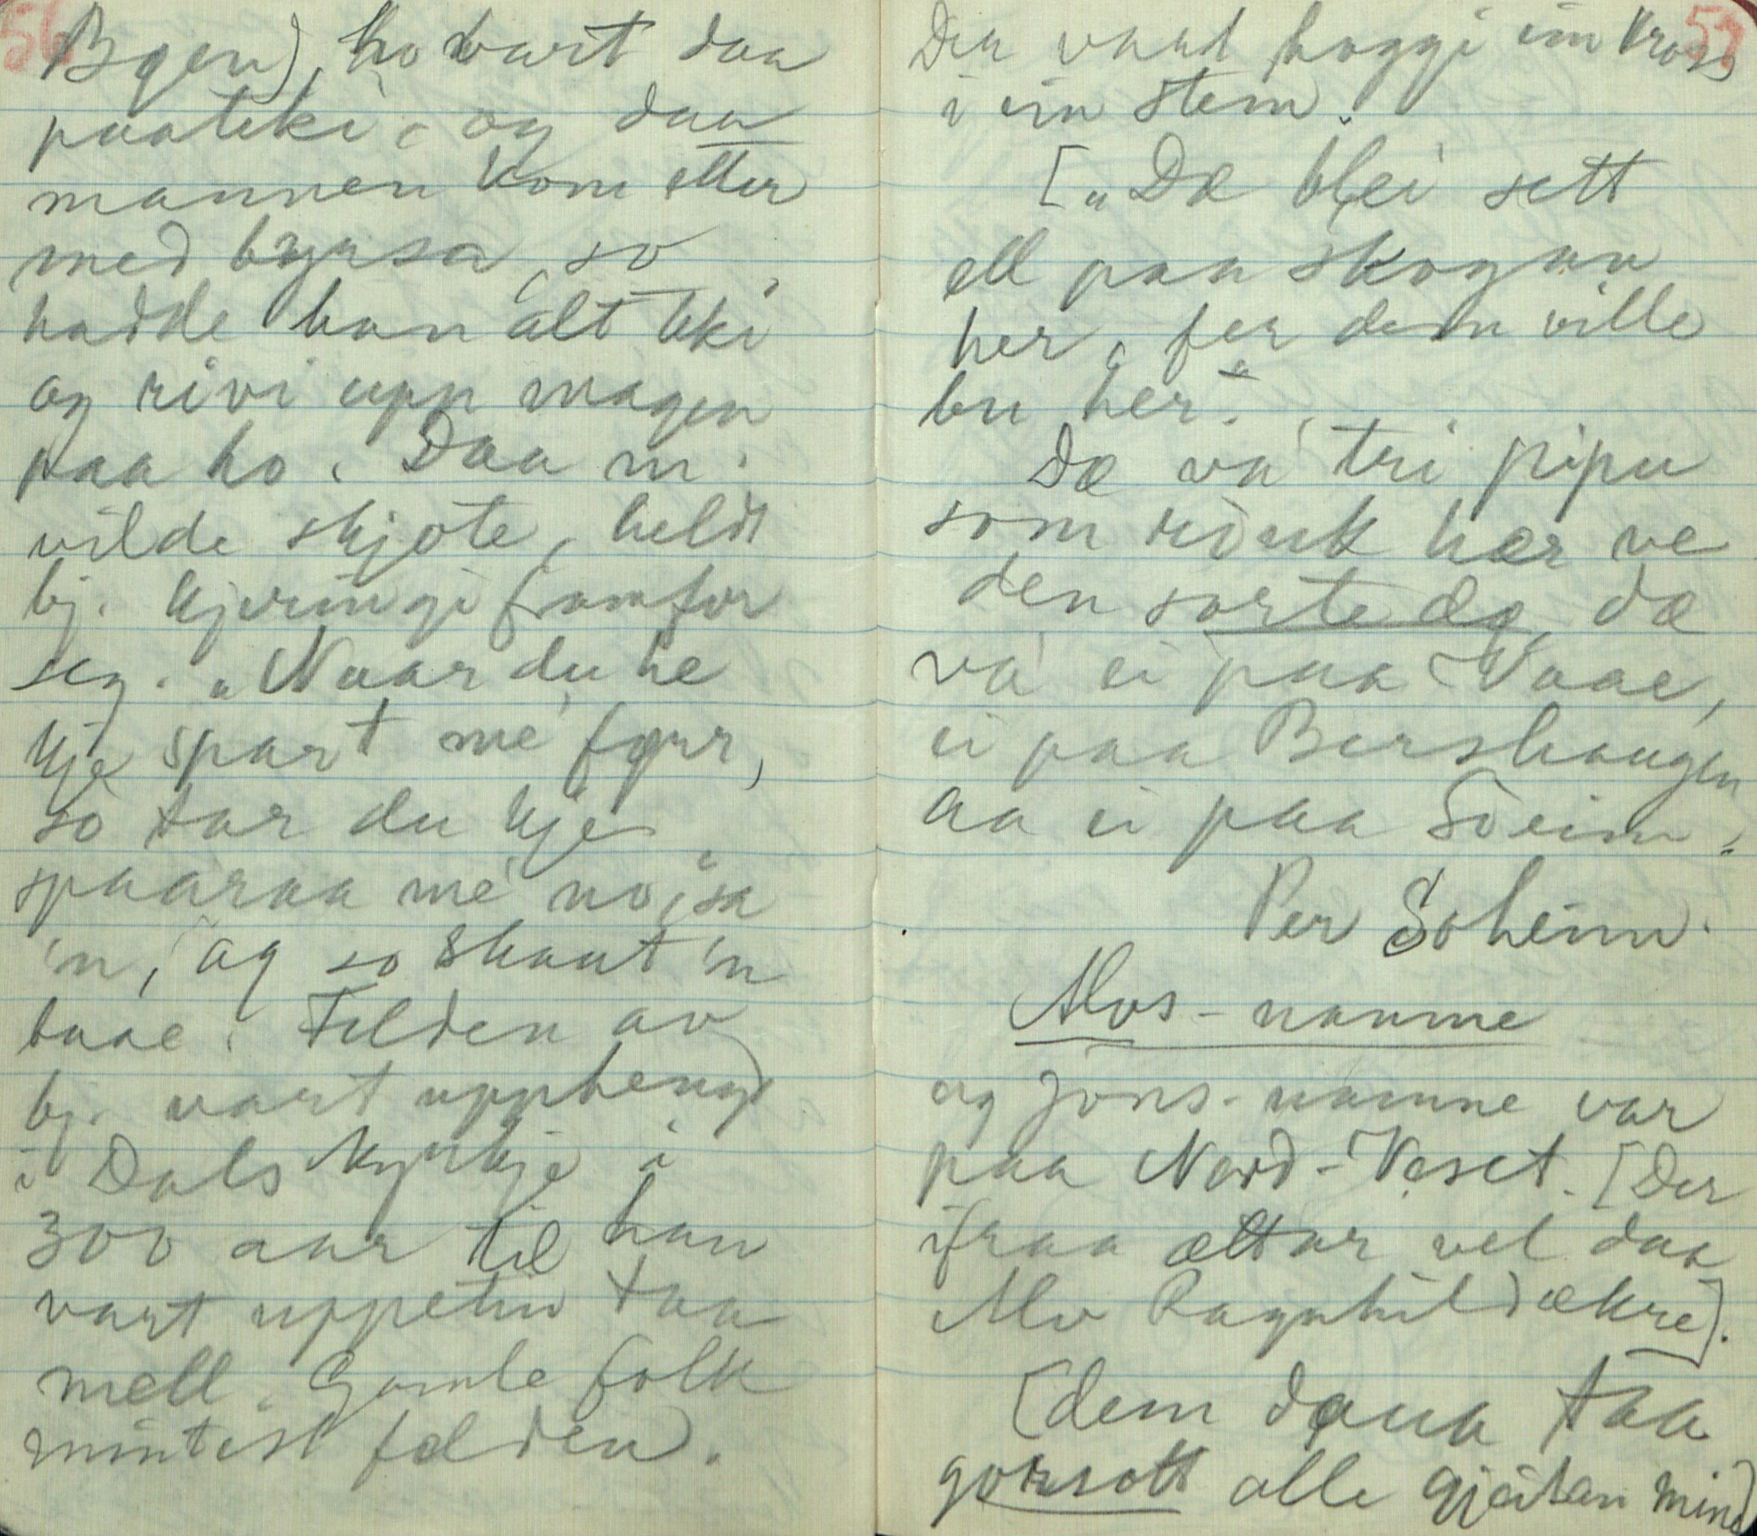 56
Bøen), ho vart daa
paateki, og daa
mannen kom etter
med byrsa, so
hadde han alt teki
og rivi upp magen
paa ho. Daa m.
vilde skjote, heldt
bj. kjeringi framfor
seg. „Naar du he
kje spart me førr,
so tar du kje
spaaraa me no," sa
'n, og so skaut 'n
baae. Felden av
bj. vart upphengd
i Dals kyrkje i
300 aar til han
vart uppetin taa
mell. Gamle folk
mintest felden.
57
Der vard hoggi ein kross
i ein stein.
[„Dæ blei sett
ell paa skogan
her, fer dem ville
bu her".
Dæ va tri pipu
som rauk her ve
den sorte dø, dæ
va ei paa Vaae,
ei paa Bershaugen
aa ei paa Soeim.
Per Soheim.
Alvs-namne
og Jons-namne var
paa Nord-Veset. [Der
ifraa ættar vel daa
Alv Ragnhildækre].
[dem døua taa
gorsott alle gjeitan min]